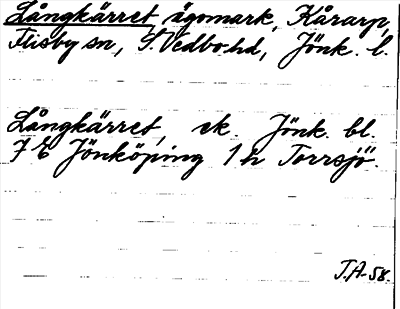 Långkärret, ägomark, Kårarp,
Flisby sn, S. Vedbo hd, Jönk. l.
Långkärret, ek. Jönk. bl.
7 E Jönköping 1 h Torrsjö.
J.A-58.